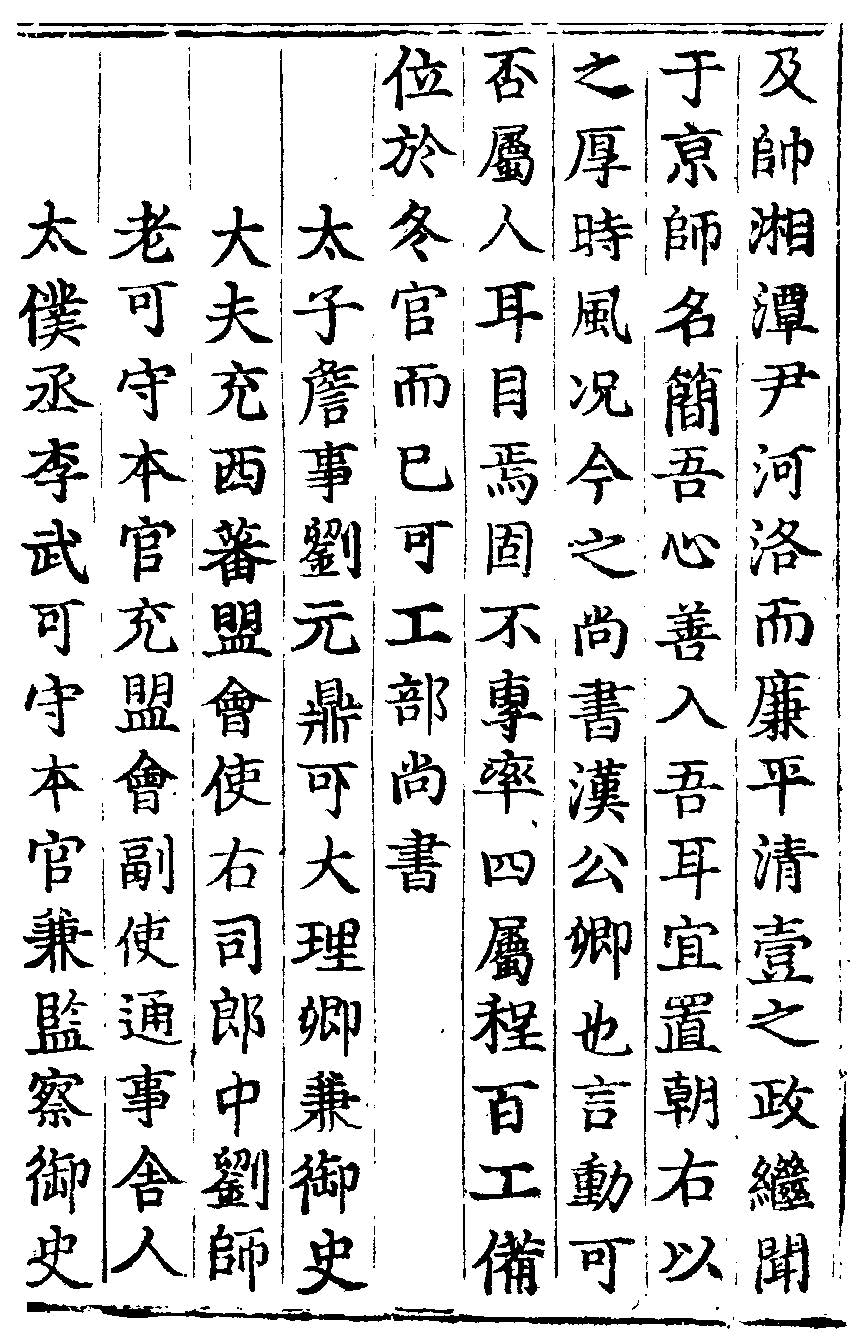 及帥湘潭尹河洛而廉平清壹之政繼聞
于京師名簡吾心善入吾耳宜置朝右以
之厚時風况今之尚書漢公卿也言動可
否屬人耳目焉固不專率四屬程百工備
位於冬官而已可工部尚書
太子詹事劉元鼎可大理卿兼御史
大夫充西蕃盟會使右司郎中劉師
老可守本官充盟會副使通事舍人
太僕丞李武可守本官兼監察御史